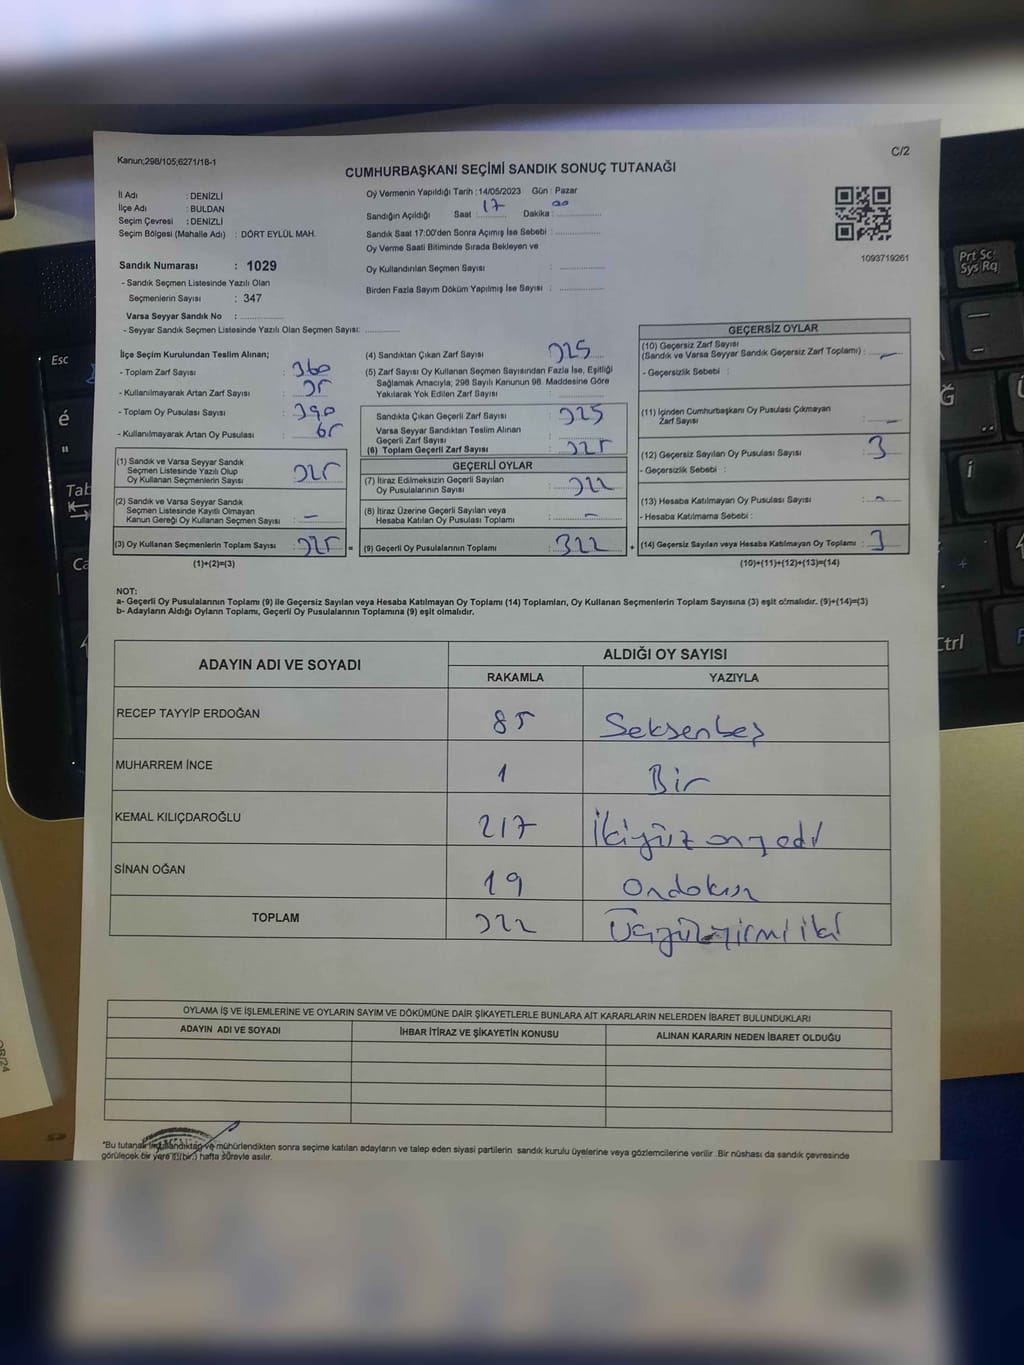 Kanun;298/105,6271/18-1
C/2
CUMHURBAŞKANI SEÇİMİ SANDIK SONUÇ TUTANAĞI
İl Adı : DENİZLİ
İlçe Adı : BULDAN
Seçim Çevresi : DENİZLİ
Seçim Bölgesi (Mahalle Adı) : DÖRT EYLÜL MAH.
Oy Vermenin Yapıldığı Tarih : 14/05/2023 Gün : Pazar
Sandığın Açıldığı Saat 17 Dakika : 00
Sandık Saat 17:00'den Sonra Açımış İse Sebebi :
Oy Verme Saati Bitiminde Sırada Bekleyen ve
Oy Kullandırılan Seçmen Sayısı :
Birden Fazla Sayım Döküm Yapılmış İse Sayısı :
1093719261
Sandık Numarası : 1029
- Sandık Seçmen Listesinde Yazılı Olan
Seçmenlerin Sayısı : 347
Varsa Seyyar Sandık No :
- Seyyar Sandık Seçmen Listesinde Yazılı Olan Seçmen Sayısı:
İlçe Seçim Kurulundan Teslim Alınan;
- Toplam Zarf Sayısı : 360
- Kullanılmayarak Artan Zarf Sayısı : 35
- Toplam Oy Pusulası Sayısı : 390
- Kullanılmayarak Artan Oy Pusulası : 65
(1) Sandık ve Varsa Seyyar Sandık
Seçmen Listesinde Yazılı Olup
Oy Kullanan Seçmenlerin Sayısı : 325
(2) Sandık ve Varsa Seyyar Sandık
Seçmen Listesinde Kayıtlı Olmayan
Kanun Gereği Oy Kullanan Seçmen Sayısı : -
(3) Oy Kullanan Seçmenlerin Toplam Sayısı : 325 =
(1)+(2)=(3)
(4) Sandıktan Çıkan Zarf Sayısı : 325
(5) Zarf Sayısı Oy Kullanan Seçmen Sayısından Fazla İse, Eşitliği
Sağlamak Amacıyla, 298 Sayılı Kanunun 98. Maddesine Göre
Yakılarak Yok Edilen Zarf Sayısı :
Sandıkta Çıkan Geçerli Zarf Sayısı : 325
Varsa Seyyar Sandıktan Teslim Alınan
Geçerli Zarf Sayısı :
(6) Toplam Geçerli Zarf Sayısı : 325
GEÇERLİ OYLAR
(7) İtiraz Edilmeksizin Geçerli Sayılan
Oy Pusulalarının Sayısı : 322
(8) İtiraz Üzerine Geçerli Sayılan veya
Hesaba Katılan Oy Pusulası Toplamı : -
(9) Geçerli Oy Pusulalarının Toplamı : 322 +
GEÇERSİZ OYLAR
(10) Geçersiz Zarf Sayısı
(Sandık ve Varsa Seyyar Sandık Geçersiz Zarf Toplamı) : -
- Geçersizlik Sebebi :
(11) İçinden Cumhurbaşkanı Oy Pusulası Çıkmayan
Zarf Sayısı : -
(12) Geçersiz Sayılan Oy Pusulası Sayısı : 3
- Geçersizlik Sebebi :
(13) Hesaba Katılmayan Oy Pusulası Sayısı : -
- Hesaba Katılmama Sebebi :
(14) Geçersiz Sayılan veya Hesaba Katılmayan Oy Toplamı : 3
(10)+(11)+(12)+(13)=(14)
NOT:
a- Geçerli Oy Pusulalarının Toplamı (9) ile Geçersiz Sayılan veya Hesaba Katılmayan Oy Toplamı (14) Toplamları, Oy Kullanan Seçmenlerin Toplam Sayısına (3) eşit olmalıdır. (9)+(14)=(3)
b- Adayların Aldığı Oyların Toplamı, Geçerli Oy Pusulalarının Toplamına (9) eşit olmalıdır.
ADAYIN ADI VE SOYADI
ALDIĞI OY SAYISI
RAKAMLA YAZIYLA
RECEP TAYYİP ERDOĞAN 85 Seksenbeş
MUHARREM İNCE 1 Bir
KEMAL KILIÇDAROĞLU 217 İkiyüz onyedi
SİNAN OĞAN 19 Ondokuz
TOPLAM 322 Üçyüzyirmiiki
OYLAMA İŞ VE İŞLEMLERİNE VE OYLARIN SAYIM VE DÖKÜMÜNE DAİR ŞİKAYETLERLE BUNLARA AİT KARARLARIN NELERDEN İBARET BULUNDUKLARI
ADAYIN ADI VE SOYADI İHBAR İTİRAZ VE ŞİKAYETİN KONUSU ALINAN KARARIN NEDEN İBARET OLDUĞU
*Bu tutanak mühürlendikten sonra seçime katılan adayların ve talep eden siyasi partilerin sandık kurulu üyelerine veya gözlemcilerine verilir .Bir nüshası da sandık çevresinde
görülecek bir yere hafta süreyle asılır.
Esc
é
"
Tab
Prt Sc
Sys Rq
Ğ
Ü
i
Ctrl